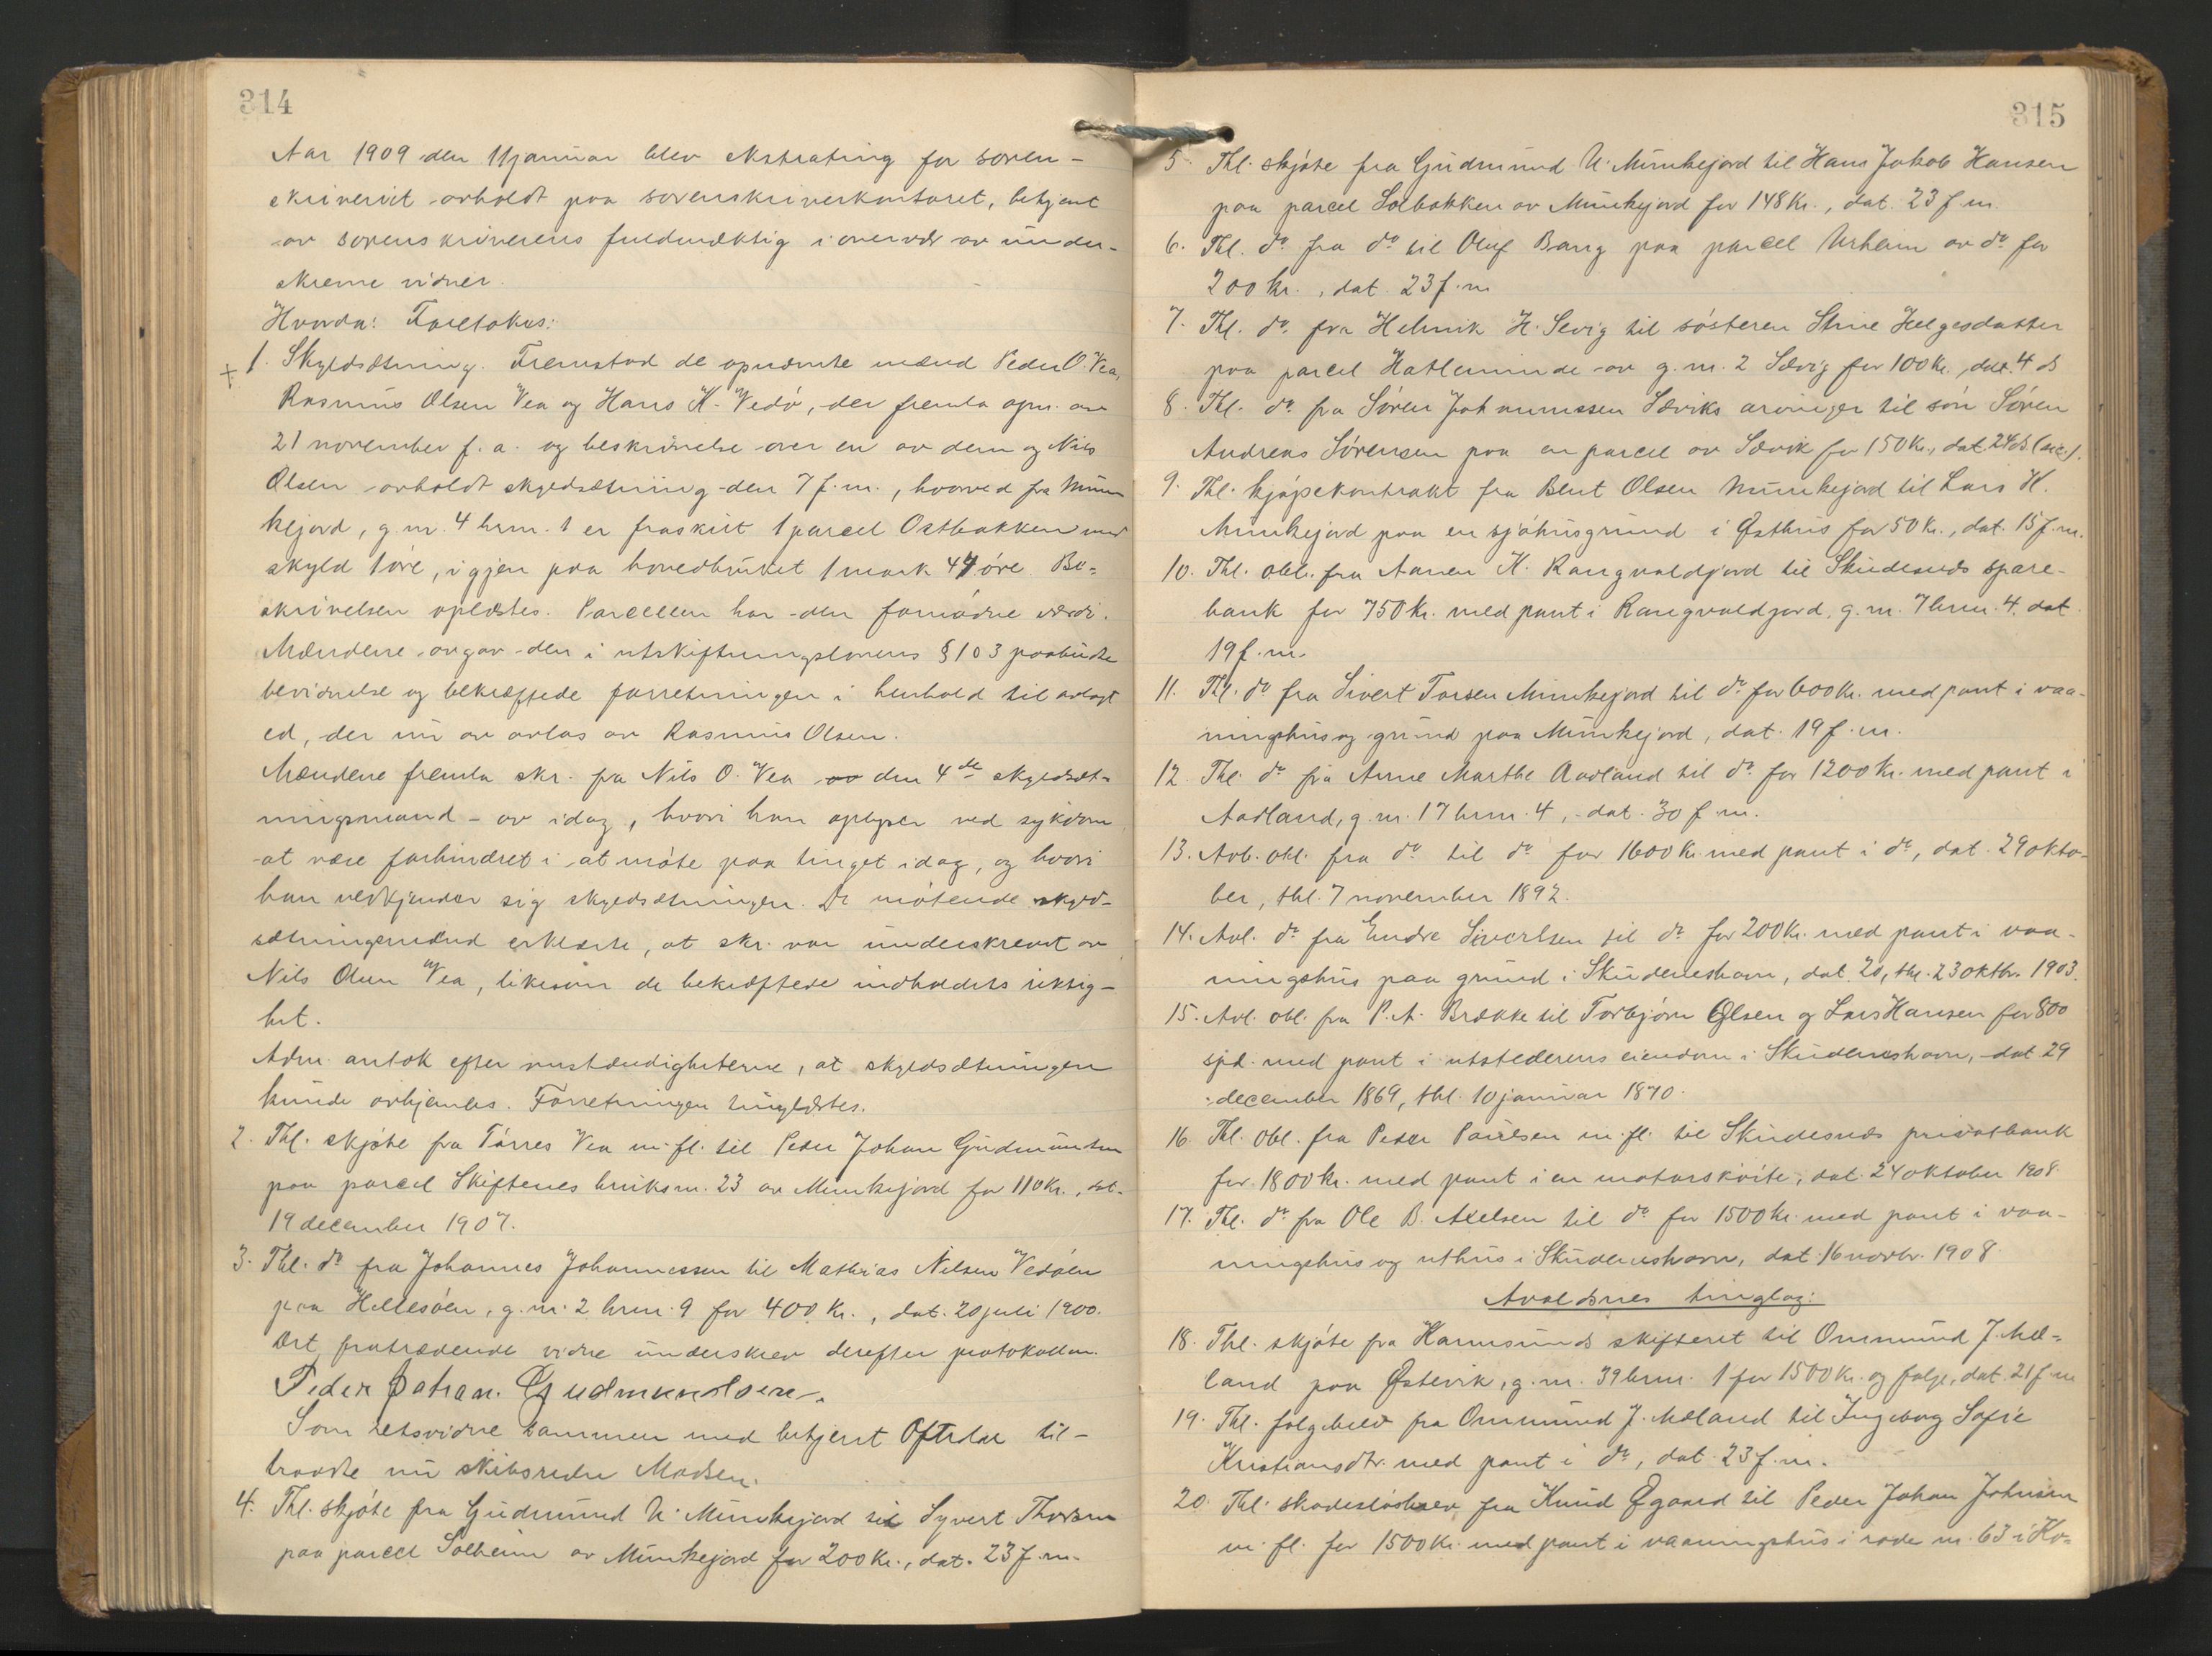 314
Aar 1909 den 11 januar blev ekstrating for soren-
skriveriet avholdt paa sorenskriverkontoret, betjent
av sorenskriverens fuldmæktig i overvær av under-
skrevne vidner.
Hvorda: Foretokes:
+ 1. Skyldsætning. Fremstod de opnævnte mænd Peder O. Vea,
Rasmus Olsen Vea og Hans K. Vedø, der fremla opn. av
21 november f. a. og beskrivelse over en av dem og Nils
Olsen avholdt skyldsætning den 7 f. m., hvorved fra Munke-
kejord, g. nr. 4 brnr. 1 er fraskilt 1 parcel Ostbakken med
skyld 1 øre, igjen paa hovedbruket 1 mark 44 øre. Be-
skrivelsen oplæstes. Parcellen har den fornødne værdi.
Mændene avgav den i utskiftningslovens § 103 paabudte
bevidnelse og bekræftede forretningen i henhold til avlagt
ed, der nu av avlas av Rasmus Olsen.
Mændene fremla skr. fra Nils O. Vea den 4de skyldsæt-
ningsmand - av idag, hvori han oplyser ved sykdom
at være forhindret i at møte paa tinget idag, og hvori
han vedkjender sig skyldsætningen. De møtende skyld-
sætningsmænd erklærte, at skr. var underskrevet av
Nils Olsen Vea, likesom de bekræftede indholdets riktig-
het.
Adm. antok efter omstændigheterne, at skyldsætningen
kunde avhjemles. Forretningen tinglæstes.
2. Thl. skjøte fra Tørres Vea m. fl. til Peder Johan Gudmundsen
paa parcel Skiftenes bruksnr. 23 av Munkejord for 110 Kr., dat.
19 december 1907.
3. Thl. do fra Johannes Johannessen til Mathias Nilsen Vedøen
paa Hillesøen, g. nr. 2 brnr. 9 for 400 Kr., dat. 20 juli 1900.
Det fratrædende vidne underskrev derefter protokollen.
Peder Johan Gudmundsen.
Som retsvidne sammen med betjent Oftedal til-
traadte nu skibsreder Madsen.
4. Thl. skjøte fra Gudmund U. Munkejord til Syvert Thorsen
paa parcel Solheim av Munkejord for 200 Kr., dat. 23 f. m.
315
5. Thl. skjøte fra Gudmund U. Munkejord til Hans Jakob Hansen
paa parcel Solbakken av Munkejord for 148 Kr., dat. 23 f. m.
6. Thl. do fra do til Oluf Bang paa parcel Urheim av do for
200 kr., dat. 23 f. m.
7. Thl. do fra Helmik H. Sevig til søsteren Stine Helgesdatter
paa parcel Hatleminde av g. nr. 2 Sævig for 100 Kr., dat. 4 ds
8. Thl. do fra Søren Johannessen Sæviks arvinger til søn Søren
Andreas Sørensen paa en parcel av Sævik for 150 Kr., dat. 24 ds. (sic).
9. Thl. kjøpekontrakt fra Blut Olsen Munkejord til Lars H.
Munkejord paa en sjøhusgrund i Østhus for 50 Kr., dat. 15 f. m.
10. Thl. obl. fra Aanen K. Rangvaldjord til Skudesnæs spare-
bank for 750 Kr. med pant i Rangvaldjord, g. nr. 7 brnr. 4, dat.
19 f. m.
11. Thl. do fra Sivert Torsen Munkejord til do for 600 Kr. med pant i vaa-
ningshus og grund paa Munkejord, dat. 19 f. m.
12. Thl. do fra Anne Marthe Aadland til do for 1200 Kr. med pant i
Aadland, g. nr. 17 brnr. 4, dat. 30 f. m.
13. Avl. obl. fra do til do for 1600 Kr. med pant i do, dat. 29 okto-
ber, thl. 7 november 1892.
14. Avl. do fra Endre Sivertsen til do for 200 Kr. med pant i vaa-
ningshus paa grund i Skudeneshavn, dat. 20, thl. 23 oktbr. 1903.
15. Avl. obl. fra P. A. Brække til Torbjørn Olsen og Lars Hansen for 800
spd. med pant i utstederens eiendom i Skudeneshavn, dat 29
december 1869, thl. 10 januar 1870.
16. Thl. obl. fra Peder Poulsen m. fl. til Skudesnæs privatbank
for 1800 kr. med pant i en motorskøite, dat. 24 oktober 1908
17. Thl. do fra Ole B. Axelsen til do for 1500 Kr. med pant i vaa-
ningshus og uthus i Skudeneshavn, dat. 16 novbr. 1908
Avaldsnes tinglag:
18. Thl. skjøte fra Karmsunds skifteret til Ommund J. Mæ-
land paa Østevik, g. nr. 39 brnr. 1 for 1500 Kr. og følge, dat. 21 f. m
19. Thl. følgebrev fra Ommund J. Mæland til Ingeborg Sofie
Kristiansdtr. med pant i do, dat. 23 f. m.
20. Thl. skadesløsbrev fra Knud Øgaard til Peder Johan Johnsen
m. fl. for 1500 Kr. med pant i vaaningshus i rode nr. 63 i Ko-